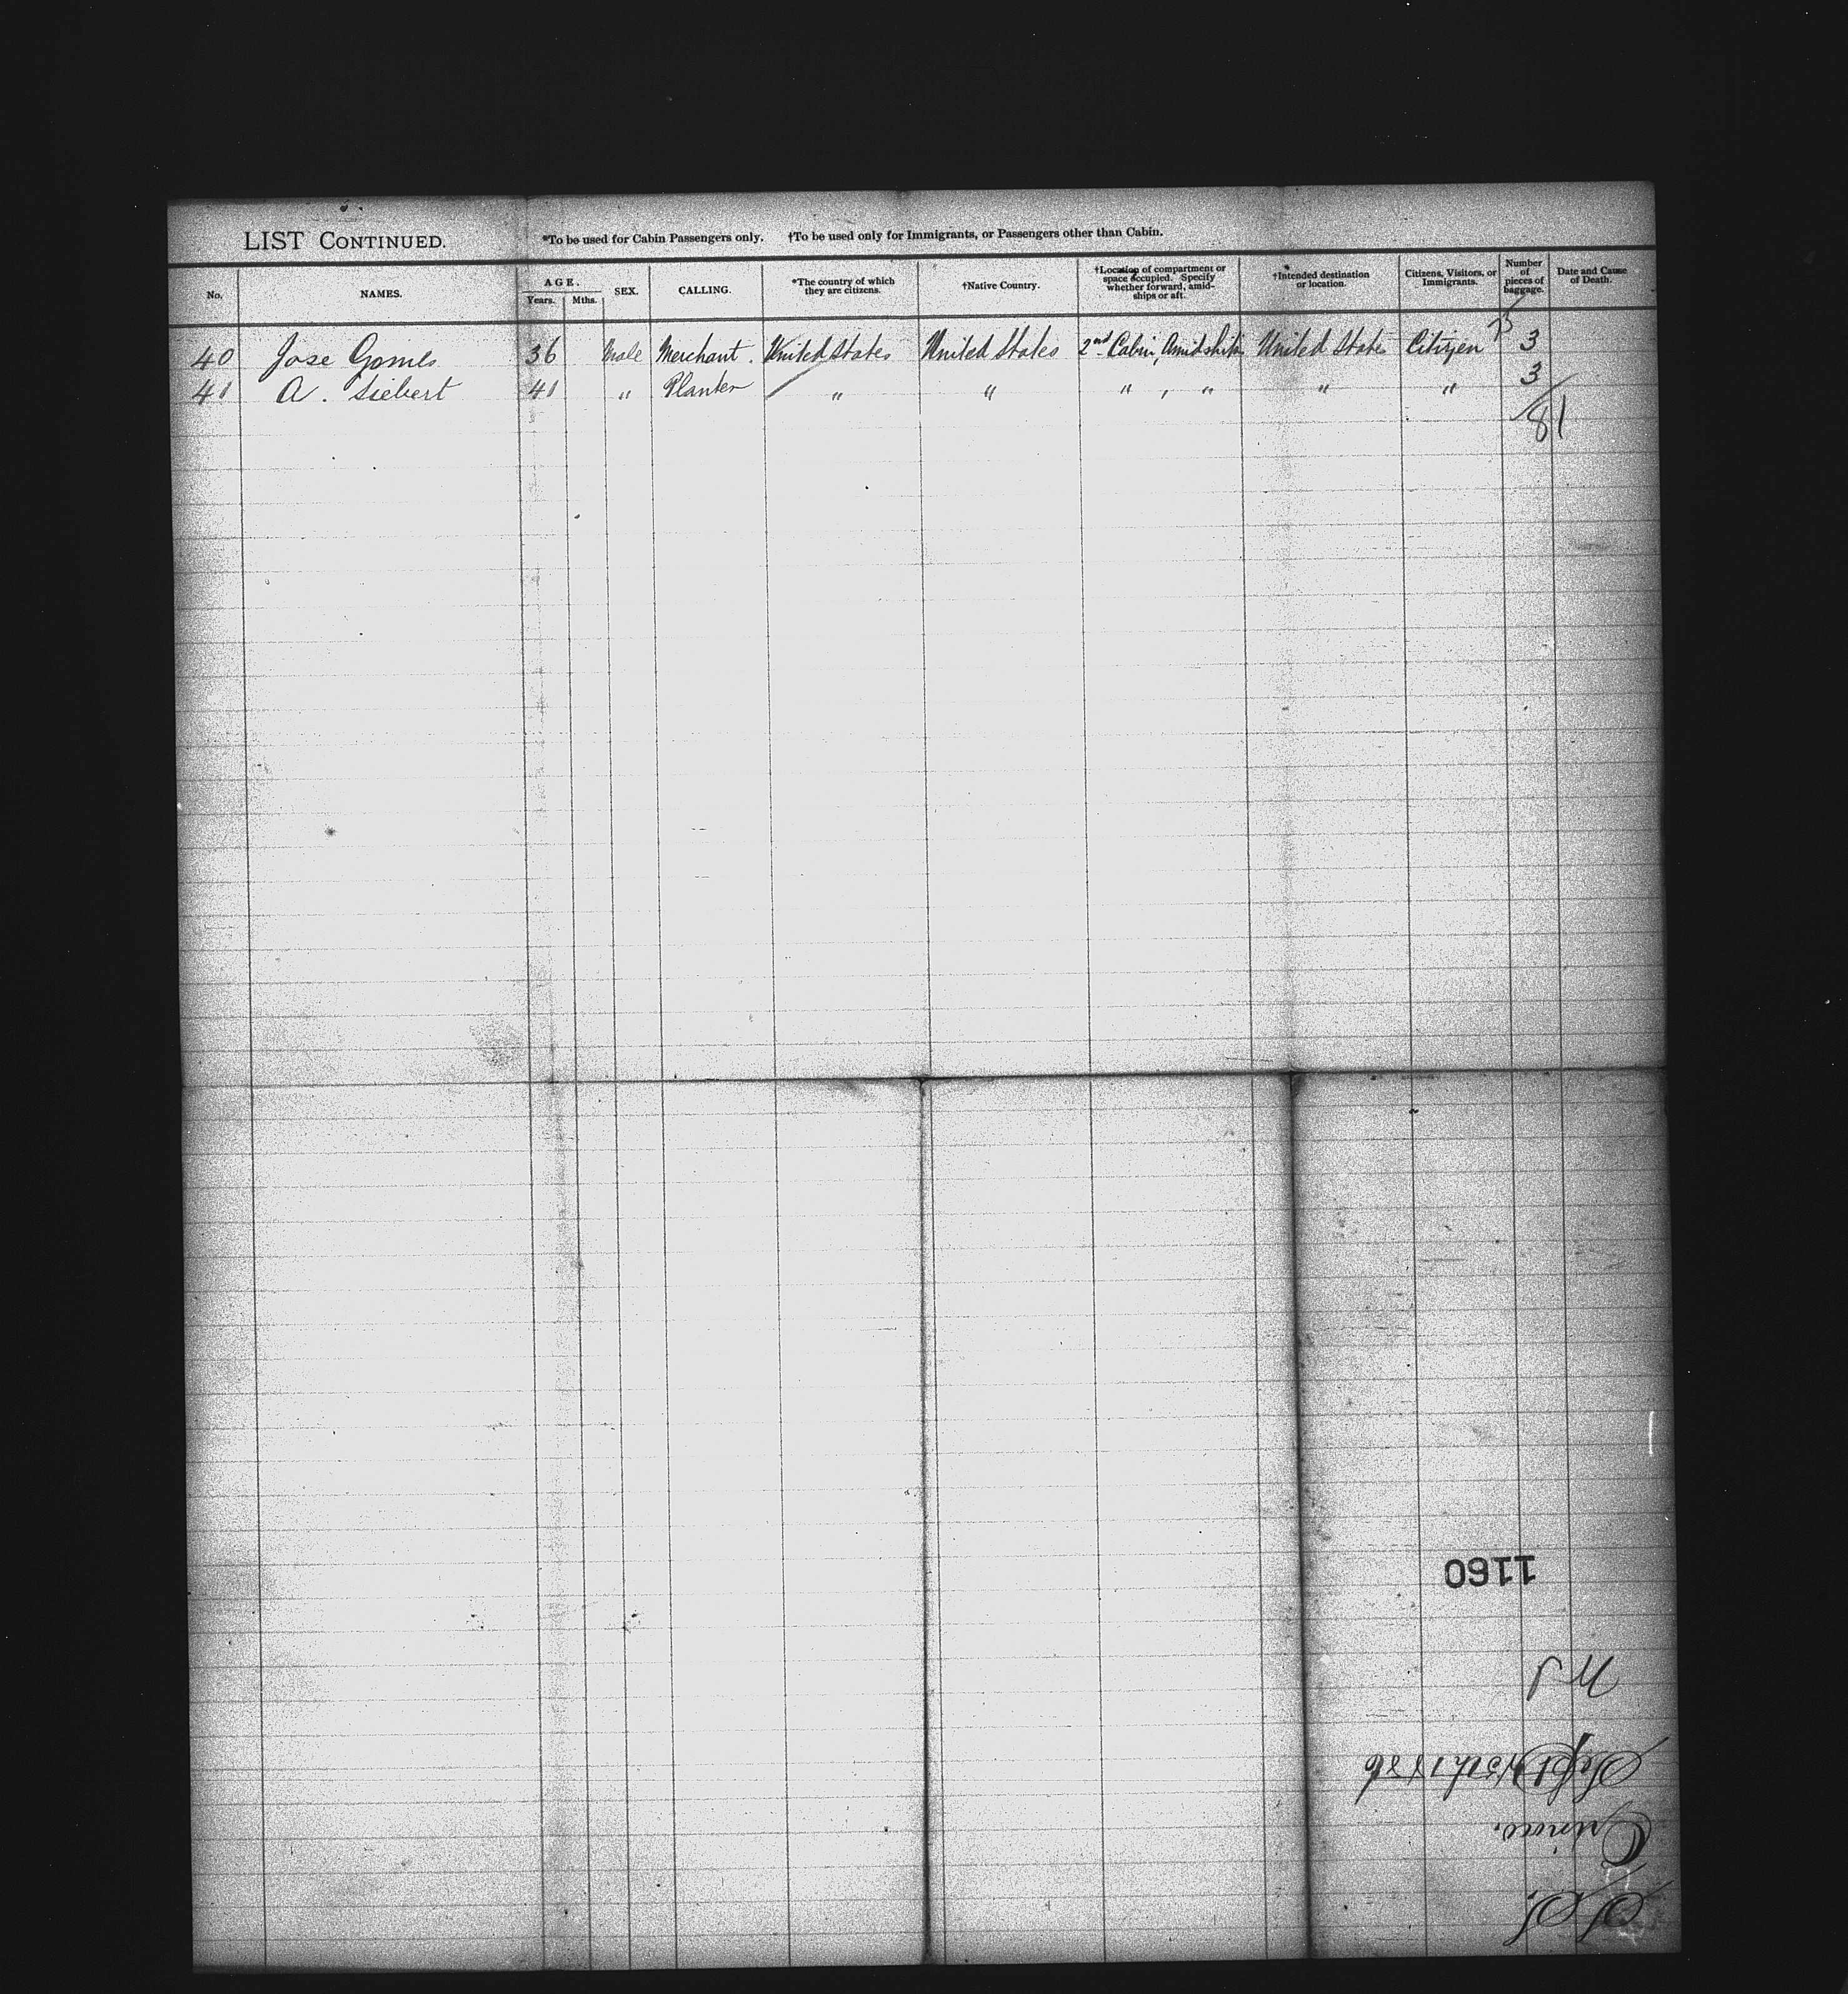 LIST CONTINUED. *To be used for Cabin Passengers only. †To be used only for Immigrants, or Passengers other than Cabin.
No. NAMES. AGE. Years. Mths. SEX. CALLING. *The country of which they are citizens. †Native Country. †Location of compartment or space occupied. Specify whether forward, amidships or aft. †Intended destination or location. Citizens, Visitors, or Immigrants. Number of pieces of baggage. Date and Cause of Death.
75
40 Jose Gomes 36 Male Merchant. United States United States 2nd Cabin, Amidships United States Citizen 3
41 A. Siebert 41 " Planter " " " , " " " 3
81
S.S.
Orinoco.
Sept 15th 1886
1160